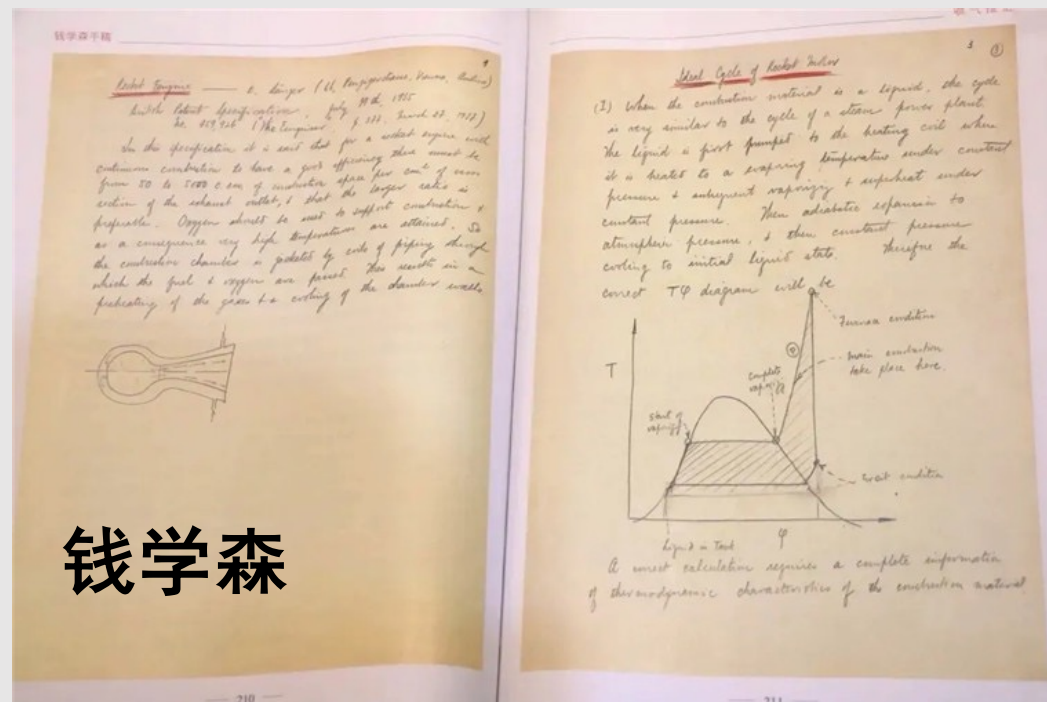 钱学森手稿
Rocket Engine —— E. Sänger (, Vienna, Austria)
British Patent Specification, July 1935
No. 459,926 (The Engineer, p. 333, March 1937)
In this specification it is said that for a rocket engine with
continuous combustion to have a good efficiency there must be
from 50 to 5000 c.cm of combustion space per cm² of cross
section of the exhaust outlet, & that the larger ratio is
preferable. Oxygen should be used to support combustion &
as a consequence very high temperatures are obtained. So
the combustion chamber is jacketed by coils of piping through
which the fuel & oxygen are passed. This results in a
preheating of the gases & a cooling of the chamber walls.
钱学森
210
Ideal Cycle of Rocket Motor
(I) When the combustion material is a liquid, the cycle
is very similar to the cycle of a steam power plant.
The liquid is first pumped to the heating coil where
it is heated to a vaporizing temperature under constant
pressure & subsequent vaporizing & superheat under
constant pressure. Then adiabatic expansion to
atmospheric pressure, & then constant pressure
cooling to initial liquid state. Therefore the
correct Tφ diagram will be
Furnace condition
main combustion
take place here.
T
Complete
vaporizg
Start of
vaporizg
Exit condition
φ
Liquid in Tank
A correct calculation requires a complete information
of thermodynamic characteristics of the combustion material.
211